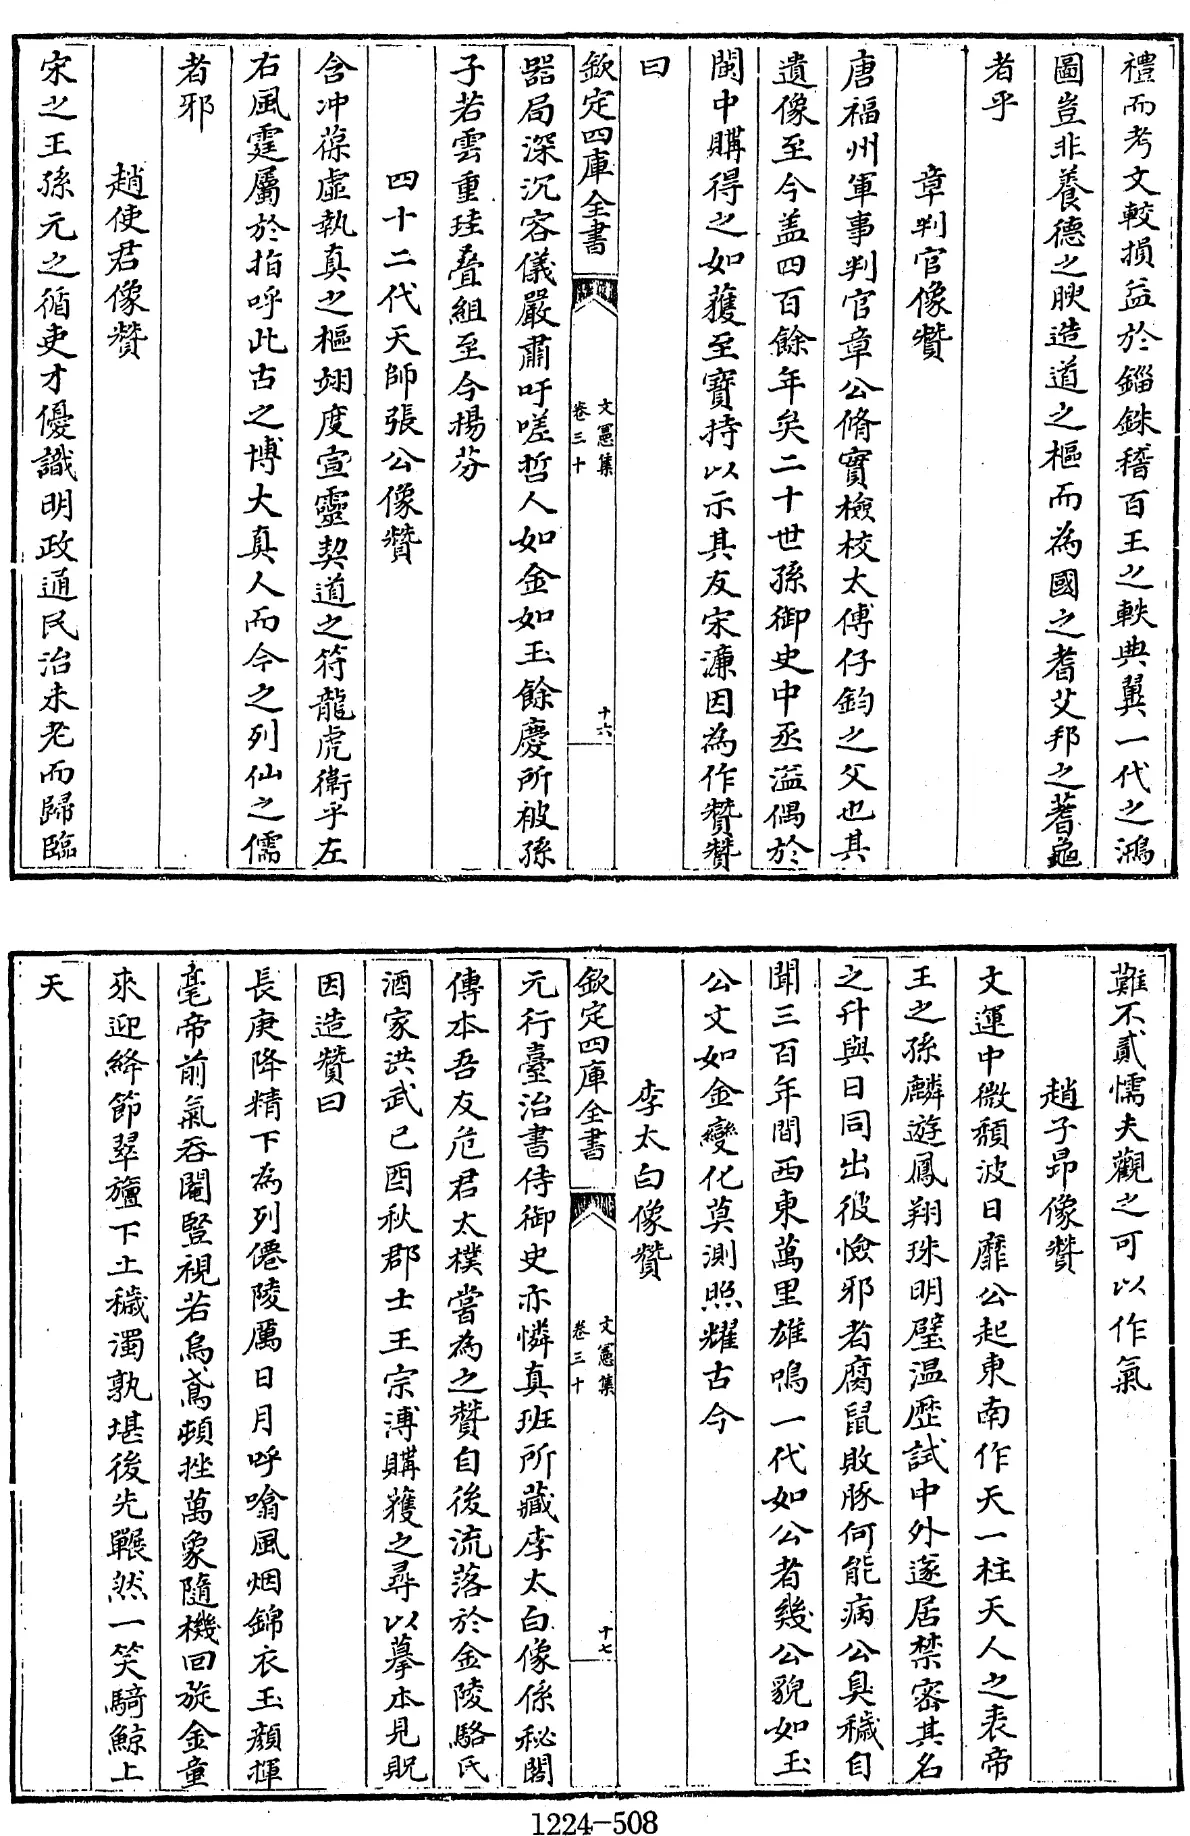 禮而考文較損益於錙銖稽百王之軼典冀一代之鴻
圖豈非養德之腴造道之樞而為國之耆艾邦之蓍龜
者乎
章判官像贊
唐福州軍事判官章公脩實檢校太傅仔鈞之父也其
遺像至今盖四百餘年矣二十世孫御史中丞溢偶於
閩中購得之如獲至寶持以示其友宋濂因為作贊贊
曰
欽定四庫全書
文憲集
卷三十
十六
器局深沉容儀嚴肅吁嗟哲人如金如玉餘慶所被孫
子若雲重珪疊組至今揚芬
四十二代天師張公像贊
含冲葆虛執真之樞翊度宣靈契道之符龍虎衛乎左
右風霆屬於指呼此古之博大真人而今之列仙之儒
者邪
趙使君像贊
宋之王孫元之循吏才優識明政通民治未老而歸臨
難不貳懦夫觀之可以作氣
趙子昂像贊
文運中微頹波日靡公起東南作天一柱天人之表帝
王之孫麟遊鳳翔珠明璧温歷試中外遂居禁密其名
之升與日同出彼憸邪者腐鼠敗豚何能病公臭穢自
聞三百年間西東萬里雄鳴一代如公者幾公貌如玉
公文如金變化莫測照耀古今
李太白像贊
欽定四庫全書
文憲集
卷三十
十七
元行臺治書侍御史亦憐真班所藏李太白像係秘閣
傳本吾友危君太樸嘗為之贊自後流落於金陵駱氏
酒家洪武己酉秋郡士王宗溥購獲之尋以摹本見貺
因造贊曰
長庚降精下為列僊陵厲日月呼噏風烟錦衣玉顏揮
毫帝前氣吞閹豎視若烏鳶頓挫萬象隨機回旋金童
來迎絳節翠旜下土穢濁孰堪後先囅然一笑騎鯨上
天
1224-508